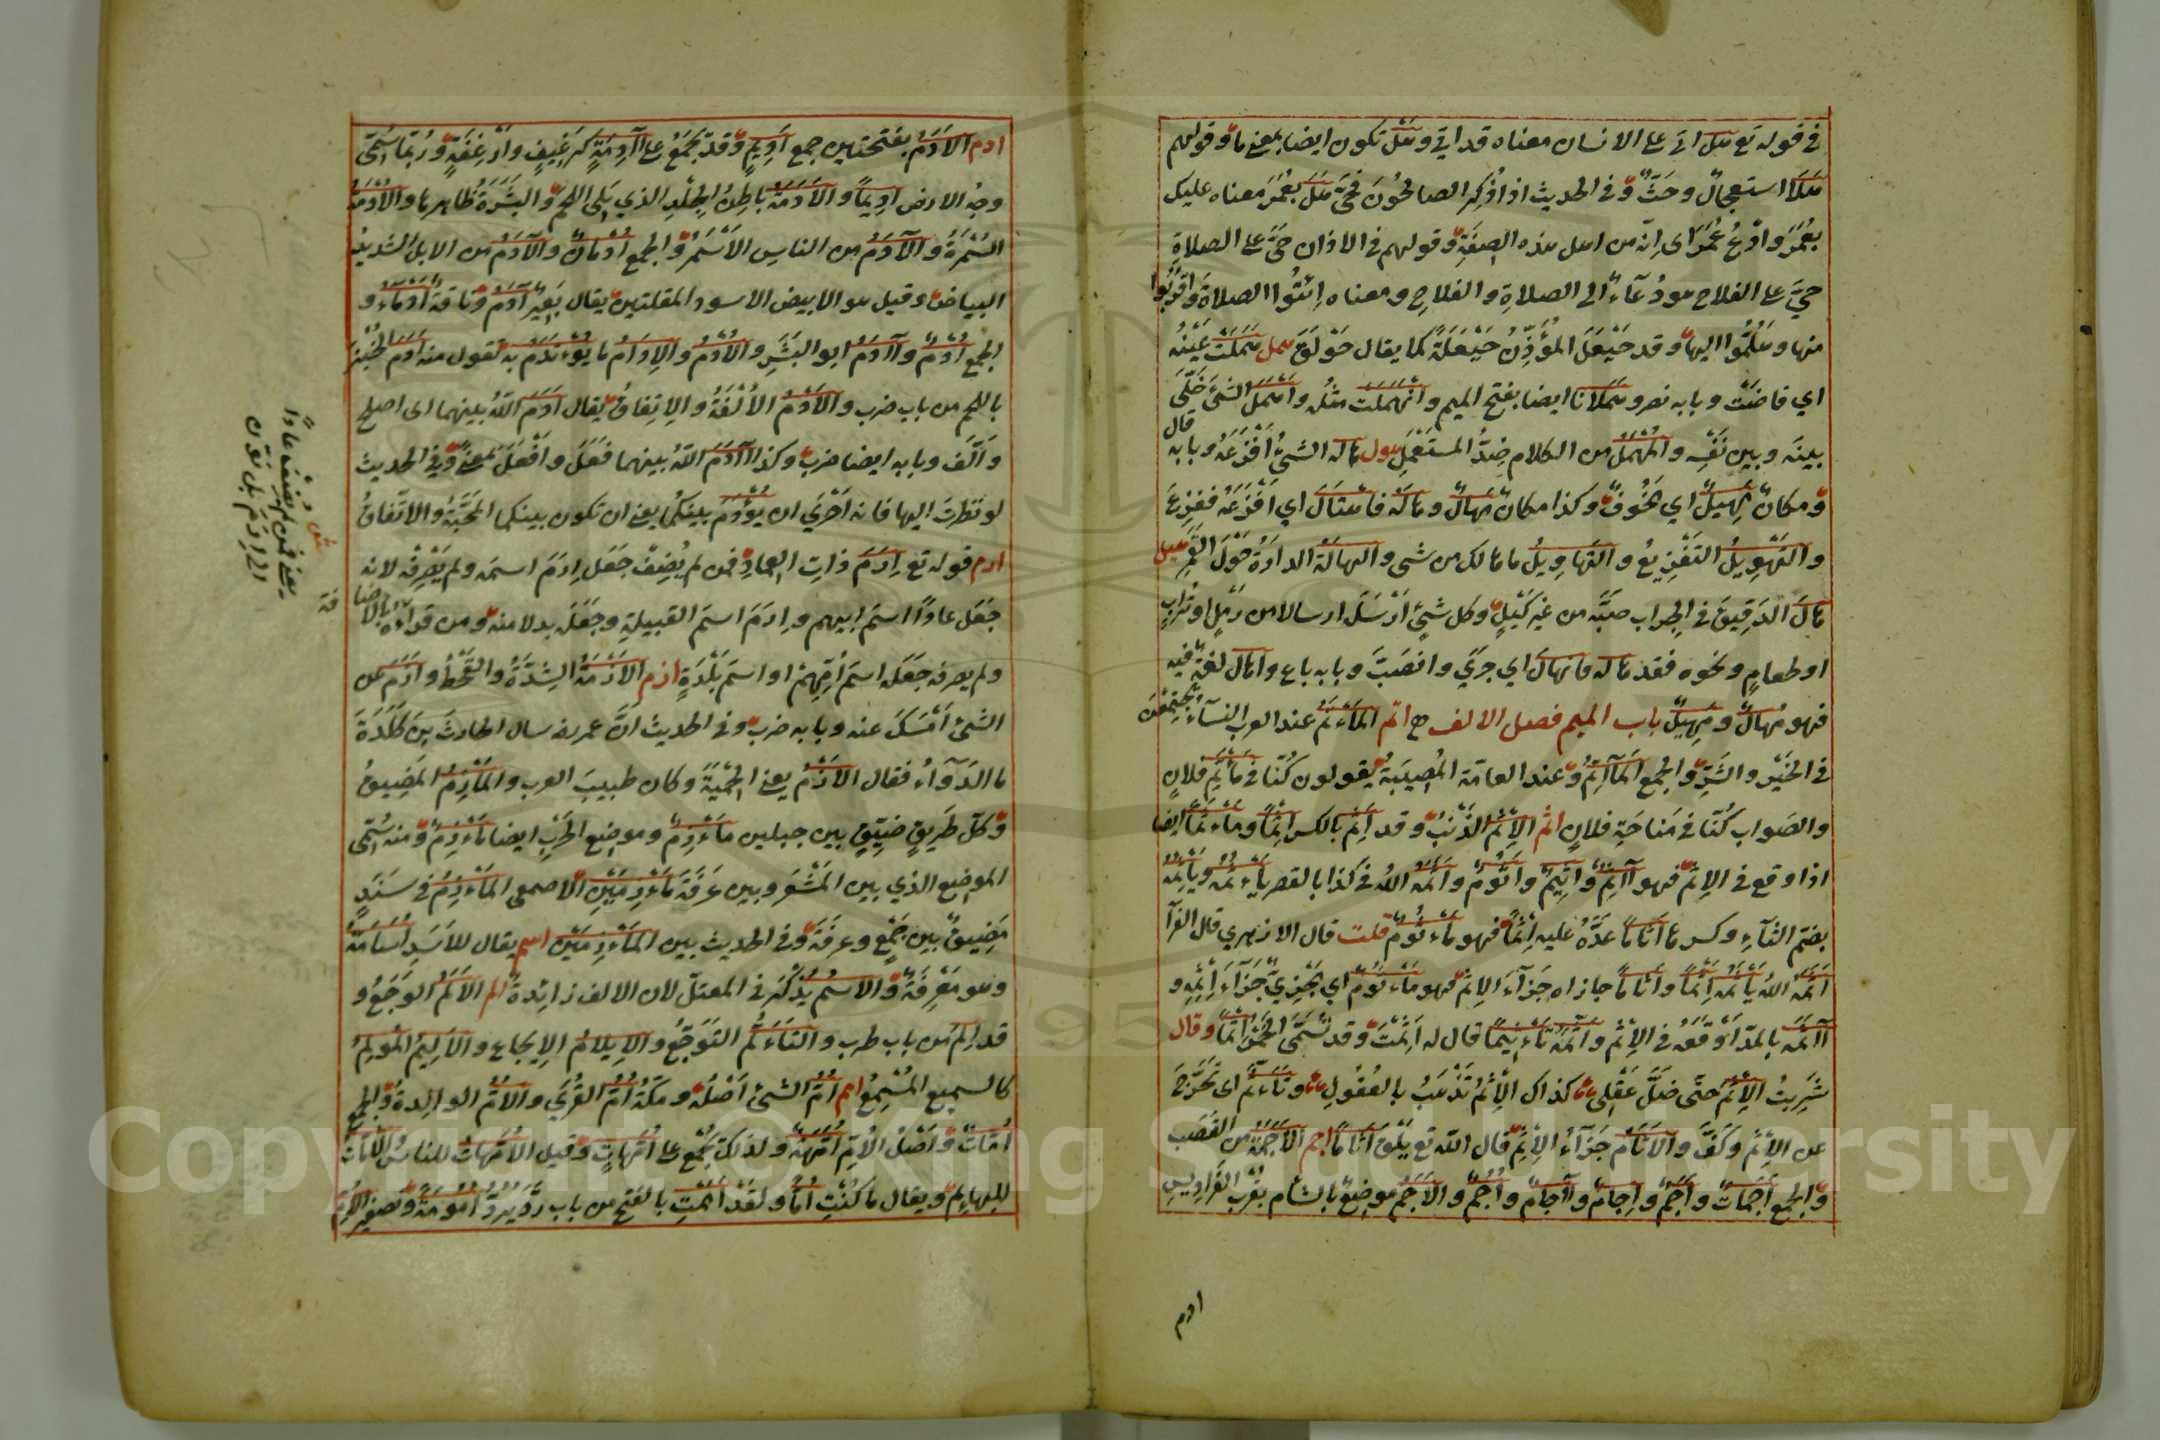 في قوله تع هل اتى على الانسان معناه قد اتى وهَلْ تكون ايضا بمعنى ما وقولهم
هَلَا استعجالٌ وحَثٌّ وفي الحديث اذا ذُكِرَ الصالحُونَ فَحَيَّ هَلَ بعُمَرَ معناه عليك
بعُمَرَ وادْعُ عُمَرَ اى انّه من اهل هذه الصِفَةِ وقولهم في الاذان حَيَّ على الصلاةِ
حَيَّ على الفلاح هو دُعَآءٌ الى الصلاةِ والفلاحِ ومعناه ائتُوا الصلاةَ واقْرُبُوا
منها وهَلُمُّوا اليها وقد حَيْعَلَ المؤذّنُ حَيْعَلَةً كما يقال حَوْلَقَ همل هَمَلَتْ عَيْنُه
اي فاضَتْ وبابه نصر وهَمَلَانا ايضا بفتح الميم وانْهَمَلَت مثله واَهْمَلَ الشئَ خَلَّى
بينَه وبين نَفْسِه والمُهْمَلُ من الكلام ضِدُّ المستَعْمَلِ هول هاله الشئُ اَفْزَعَهُ وبابه قال
ومكانٌ مَهِيلٌ اي مَخُوفٌ وكذا مكانٌ مَهالٌ وهَالَه فاهْتالَ اي اَفْزَعَه ففَزِعَ
والتَهْوِيلُ التَفْزِيعُ والتَهَاوِيلُ ما هالك من شئ والهالَةُ الدارَةُ حَوْلَ القَمَرِ هيل
هالَ الدَقِيقَ في الجِراب صبَّه من غير كَيْلٍ وكل شئٍ اَرْسَلَه ارسالا من رَمْلٍ او تُرابٍ
او طعامٍ ونحوه فقد هاله فانهالَ اي جرَى وانصَبَّ وبابه باع واهال لغةٌ فيه
فهو مُهالٌ ومَهِيلٌ باب الميم فصل الالف اتم المَأْتَمُ عند العرب النسآءُ يَجْتَمِعْنَ
في الخَيْرِ والشَرِّ والجمع المآتِمُ وعند العامّة المُصِيبَةُ يقولون كُنّا في مَأْتَمِ فلانٍ
والصَواب كُنّا في مَناحَةِ فلانٍ اثم الاِثْمُ الذَنْبُ وقد اَثِمَ بالكسر اِثْمًا ومَأْثَمًا ايضا
اذا وقع في الاِثْمِ فهو آثِمٌ واَثِيمٌ واَثُومٌ واَثَمَه اللهُ في كذا بالقصر يَأْثُمُه ويَأْثِمُه
بضم الثآءِ وكسرها اَثَامًا عدَّهُ عليه اِثْمًا فهو مَأْثُومٌ قلت قال الازهري قال الفرآ
اَثَمَه اللهُ يَأْثِمُه اِثْمًا واَثامًا جازاه جَزآءَ الاِثْمِ فهو مَأْثُومٌ اي مَجْزِيٌّ جَزآءَ اِثْمِهِ و
آثَمَه بالمدّ اَوْقَعَه في الاِثْمِ واَثَّمَه تَأْثِيمًا قال له اَثِمْتَ وقد تُسَمَّى الخَمْرُ اِثْمًا وقال
شَرِبْتُ الاِثْمَ حتّى ضَلَّ عَقْلِى كذاك الاِثْمُ تَذْهَبُ بالعُقُولِ وتَأَثَّمَ اى تَحَرَّجَ
عن الاِثْمِ وكَفَّ والاَثَام جَزآءُ الاِثْمِ قال اللّه تع يَلْقَ اَثَامًا اجم الاَجَمَةُ من القَصَب
والجمع اَجَمَاتٌ واَجَمٌ واِجَامٌ وآجَامٌ واُجُمٌ والاَجَمُ موضعٌ بالشأم بقُرْبِ الفَرادِيسِ
ادم
ادم الاَدَمُ بفتحتين جمع اَدِيمٍ وقد يُجْمَعُ على آدِمَةٍ كرَغِيفٍ واَرْغِفَةٍ ورُبَّما سُمِّىَ
وجهُ الارض اَدِيمًا والاَدَمَةُ باطِنُ الجِلْدِ الذي يَلِى اللحمَ والبَشَرَةُ ظاهرها والاُدْمَةُ
السُمْرَةُ والآدَمُ من الناسِ الاَسْمَرُ والجمع اُدْمانٌ والآدَمُ من الابل الشديدُ
البياضِ وقيل هو الابيض الاسود المقلتين يقال بَعِيرٌ آدَمُ وناقةٌ اَدْمَآءُ و
الجمع اُدْمٌ وآدَمُ ابو البَشَرِ والاُدْمُ والاِدَامُ ما يُؤْتَدَمُ به تقول منه اَدَمَ الخُبْزَ
باللحم من باب ضرب والاَدْمُ الاُلْفَةُ والاِتِفاقُ يقال اَدَمَ اللّهُ بينهما اى اصلح
واَلَّفَ وبابه ايضا ضرب وكذا آدَمَ اللّهُ بينهما فَعَلَ واَفْعَلَ بمعنًى وفي الحديث
لو نَظَرتَ اليها فانه اَحْرَى ان يُؤْدَمَ بينَكُما يعنى ان تكون بينكما المحَبَّةُ والاتّفاقُ
ارم قوله تع اِرَمَ ذاتِ العِمادِ فمن لم يُضِفْ جَعَلَ اِرَمَ اسمَه ولم يَصْرِفْه لانه
جَعَلَ عادًا اسمَ ابيهم واِرَمَ اسمَ القبيلةِ وجَعَلَه بدلا منه ومن قرأه بالاضافة
ولم يصرفه جَعَلَه اسمَ اُمِّهِمْ او اسمَ بَلْدَةٍ ازم الاَزْمَةُ الشِدَّةُ والقَحْطُ واَزَمَ عن
الشئِ اَمْسَكَ عنه وبابه ضرب وفي الحديث انَّ عمر رضه سال الحارثَ بنَ كَلَدَةَ
ما الدَوَآءُ فقال الاَزْمُ يعنى الحِمْيَةَ وكان طبيبَ العرب والمَأْزِمُ المَضِيقُ
وكلّ طَرِيقٍ ضيّقٍ بين جبلين مَأْزِمٌ وموضع الحَرْبِ ايضا مَأْزِمٌ ومنه سُمّى
الموضع الذي بين المَشْعَرِ وبين عَرَفَةَ مَأْزِمَيْنِ الاصمعى المَأْزِمُ في سَنَدٍ
مَضِيقٌ بين جَمْعٍ وعرفَةَ وفي الحديث بين المَأْزِمَيْنِ اسم يقال للاَسَدِ اُسَامَةُ
وهو مَعْرِفَةٌ والاسمُ يُذْكَرُ في المعتلّ لان الالف زائدةٌ الم الاَلَمُ الوَجَعُ و
قد اَلِمَ من باب طرب والتَأَلُّمُ التَوَجُّعُ والاِيلامُ الاِيجاع والاَلِيمُ المُولِمُ
كالسميع المُسْمِعُ امم اُمُّ الشئِ اَصْلُه ومكّةُ اُمُّ القُرَى والاُمُّ الوالدةُ والجمع
اُمّاتٌ واَصْلُ الاُمِّ اُمَّهَةٌ ولذلك تُجْمَعُ على اُمَّهاتٍ وقيل الاُمَّهاتُ للناس والاُمَّاتُ
للبهايمِ ويقال ما كُنْتِ اُمًّا ولَقَدْ اَمَمْتِ بالفتح من باب رَدَّ يَرُدُّ اُمُومَةً وتصغير الاُمِّ
Copyright © King Saud University